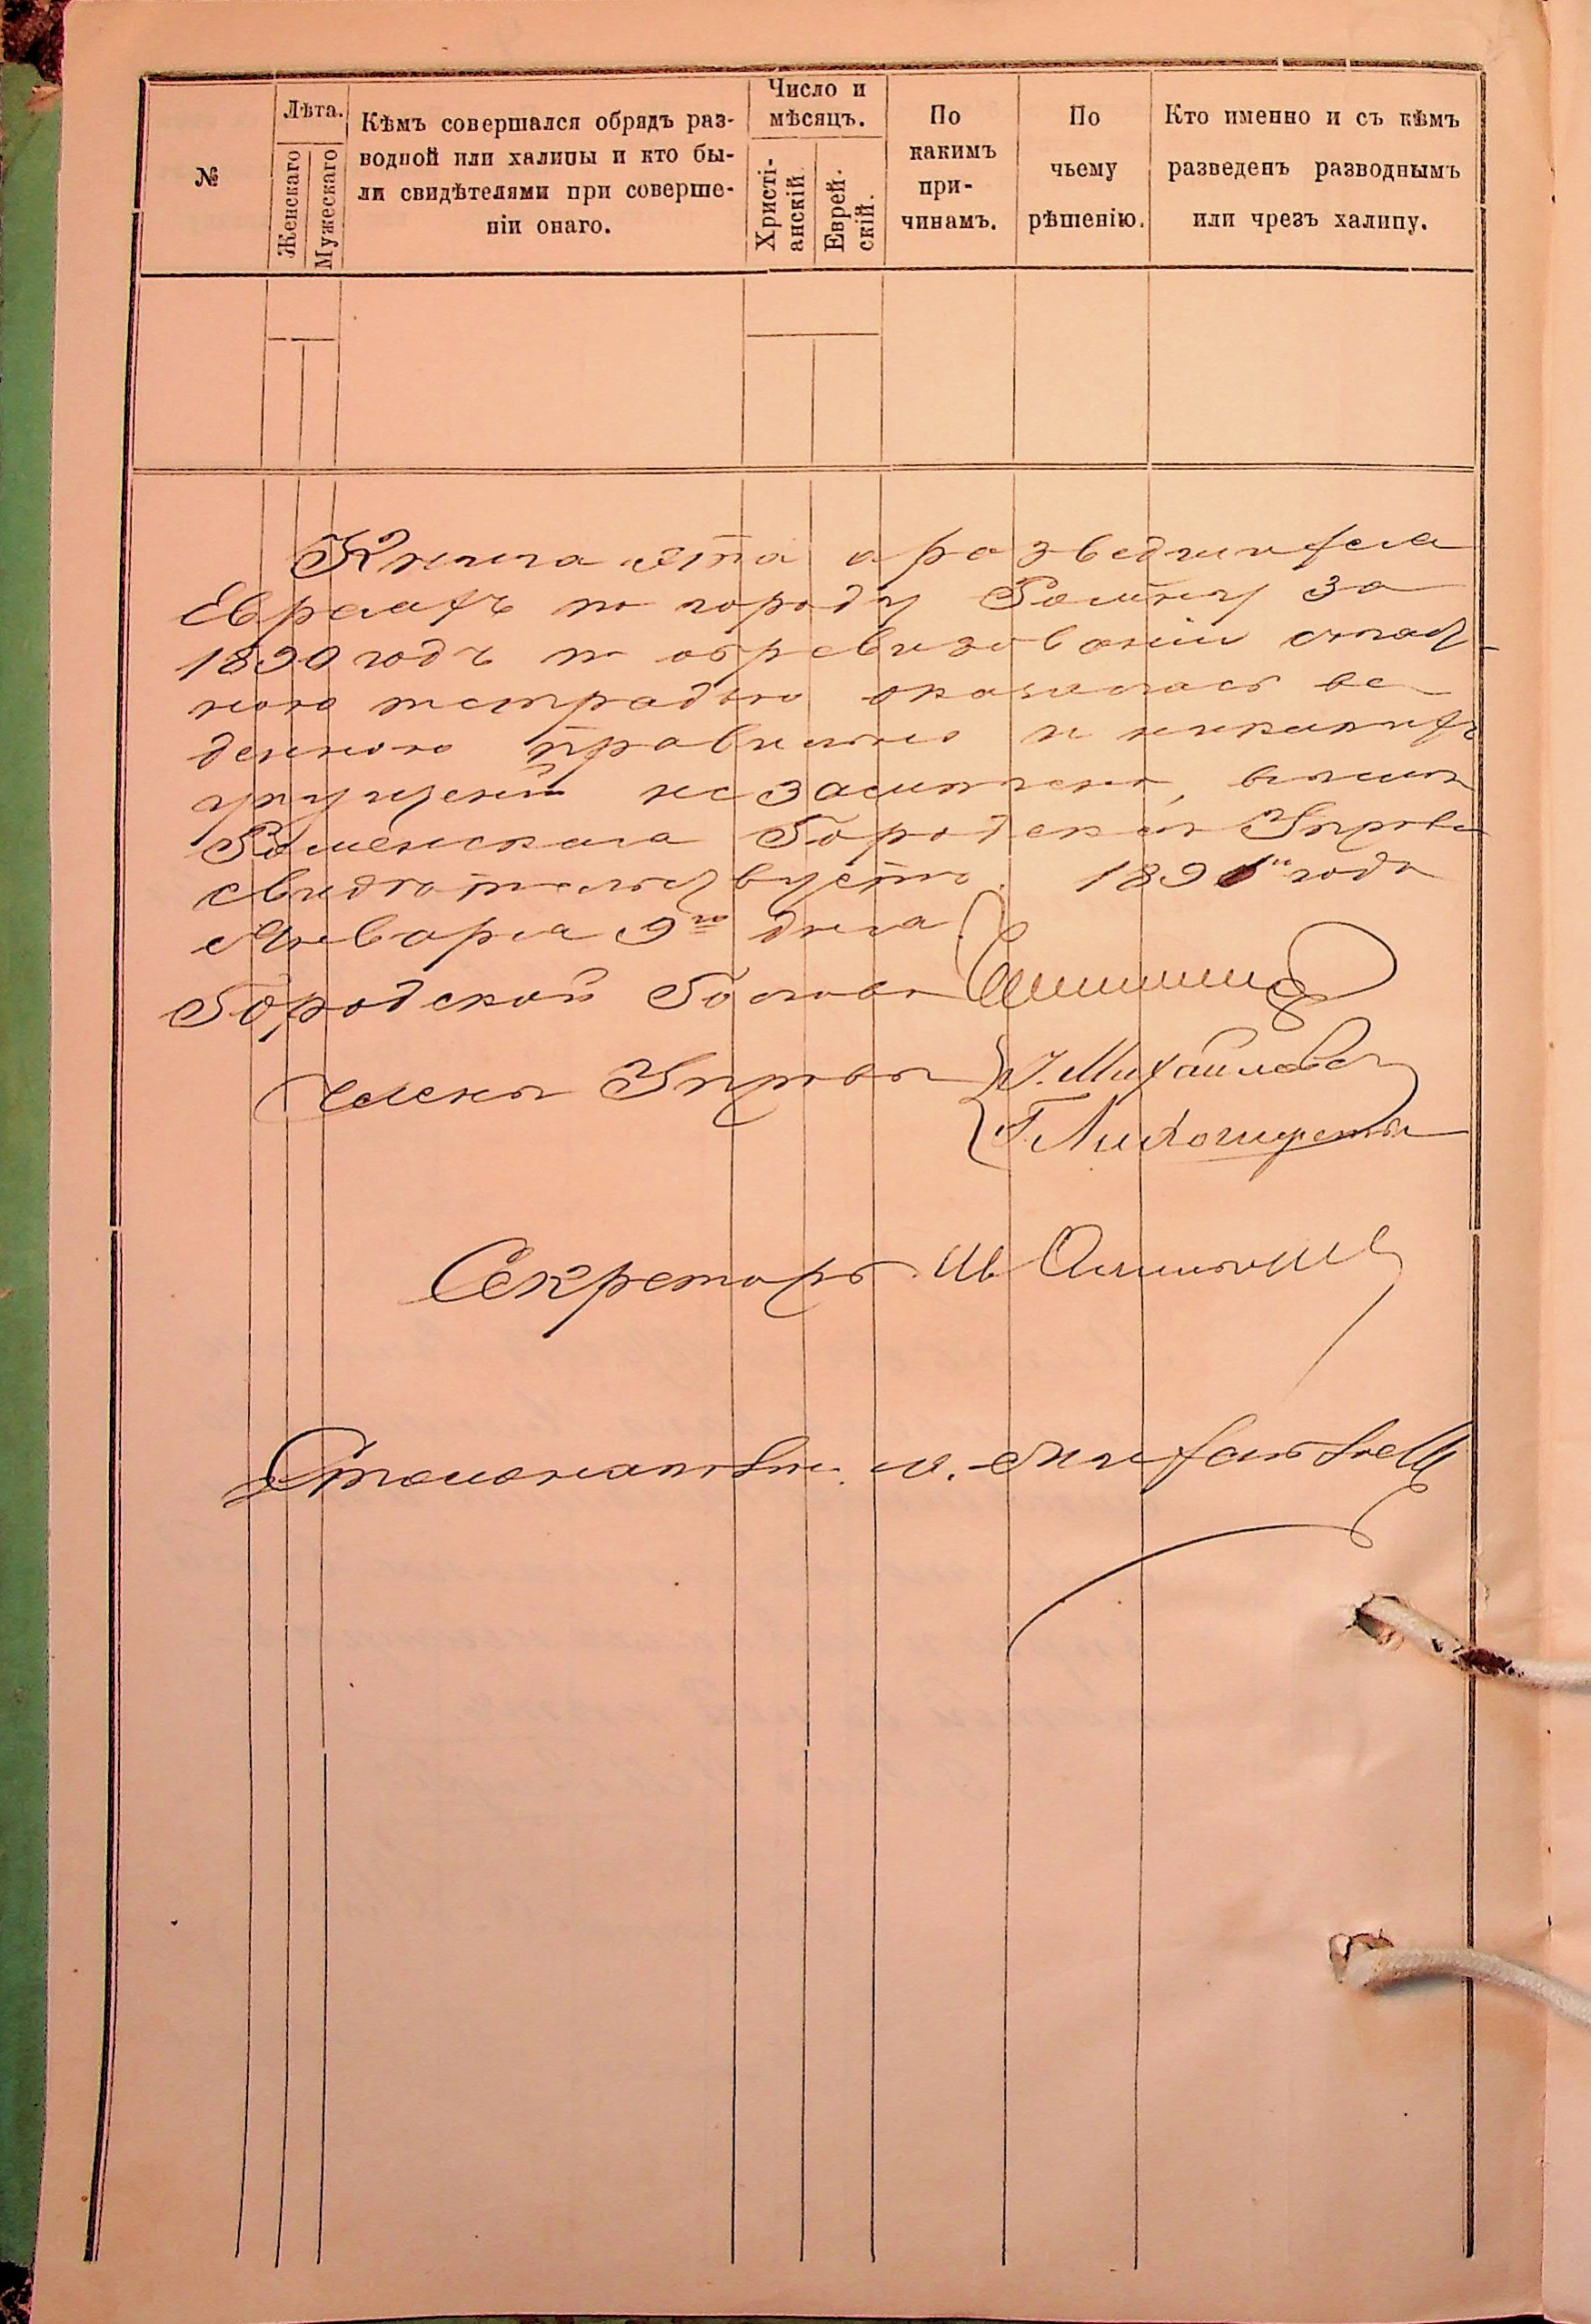 №
Лѣта.
Женскаго
Мужескаго
Кѣмъ совершался обрядъ раз-
водной или халицы и кто бы-
ли свидѣтелями при соверше-
ніи онаго.
Число и
мѣсяцъ.
Христі-
анскій.
Еврей-
скій.
По
какимъ
при-
чинамъ.
По
чьему
рѣшенію.
Кто именно и съ кѣмъ
разведенъ разводнымъ
или чрезъ халицу.
Книга эта о разведшихся
Евреяхъ по городу Ромну за
1890 годъ по обревизованіи
тетрадью оказалась ве-
денною правильно и никакихъ
упущеній не замѣчено, въ чемъ
Роменская Городская Управа
свидѣтельствуетъ. 1891 года
Января 9го дня.
Городской Голова
Члены Управы
Михайловъ
Секретарь